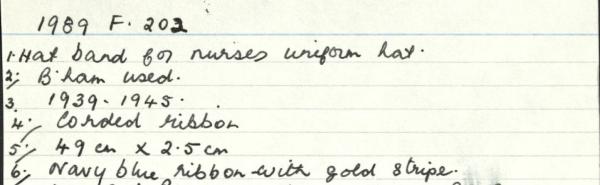 1989 F. 202
1. Hat band for nurses uniform hat.
2; B'ham used.
3. 1939-1945.
4. Corded ribbon
5; 49 cm x 2.5 cm
6; Navy blue ribbon with gold stripe.